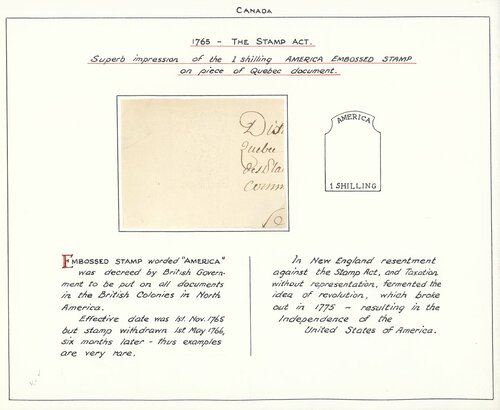 CANADA
1765 - THE STAMP ACT.
Superb impression of the 1 shilling AMERICA EMBOSSED STAMP
on piece of Quebec document.
Dist
Quebe
AMERICA
1 SHILLING
EMBOSSED STAMP worded "AMERICA"
was decreed by British Govern-
ment to be put on all documents
in the British Colonies in North
America.
Effective date was 1st. Nov. 1765
but stamp withdrawn 1st May 1766,
six months later - thus examples
are very rare.
In New England resentment
against the Stamp Act, and Taxation
without representation, fermented the
idea of revolution, which broke
out in 1775 - resulting in the
Independence of the
United States of America.